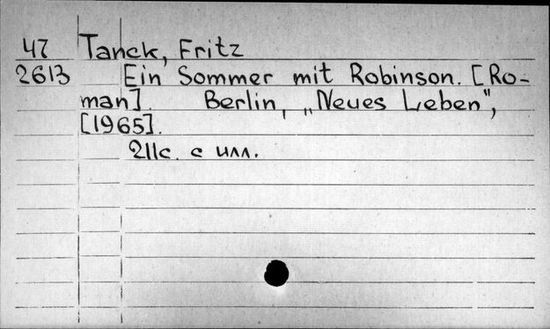 47 Tanck, Fritz
2613 Ein Sommer mit Robinson. [Ro-
man]. Berlin, „Neues Leben",
[1965].
211с. с илл.